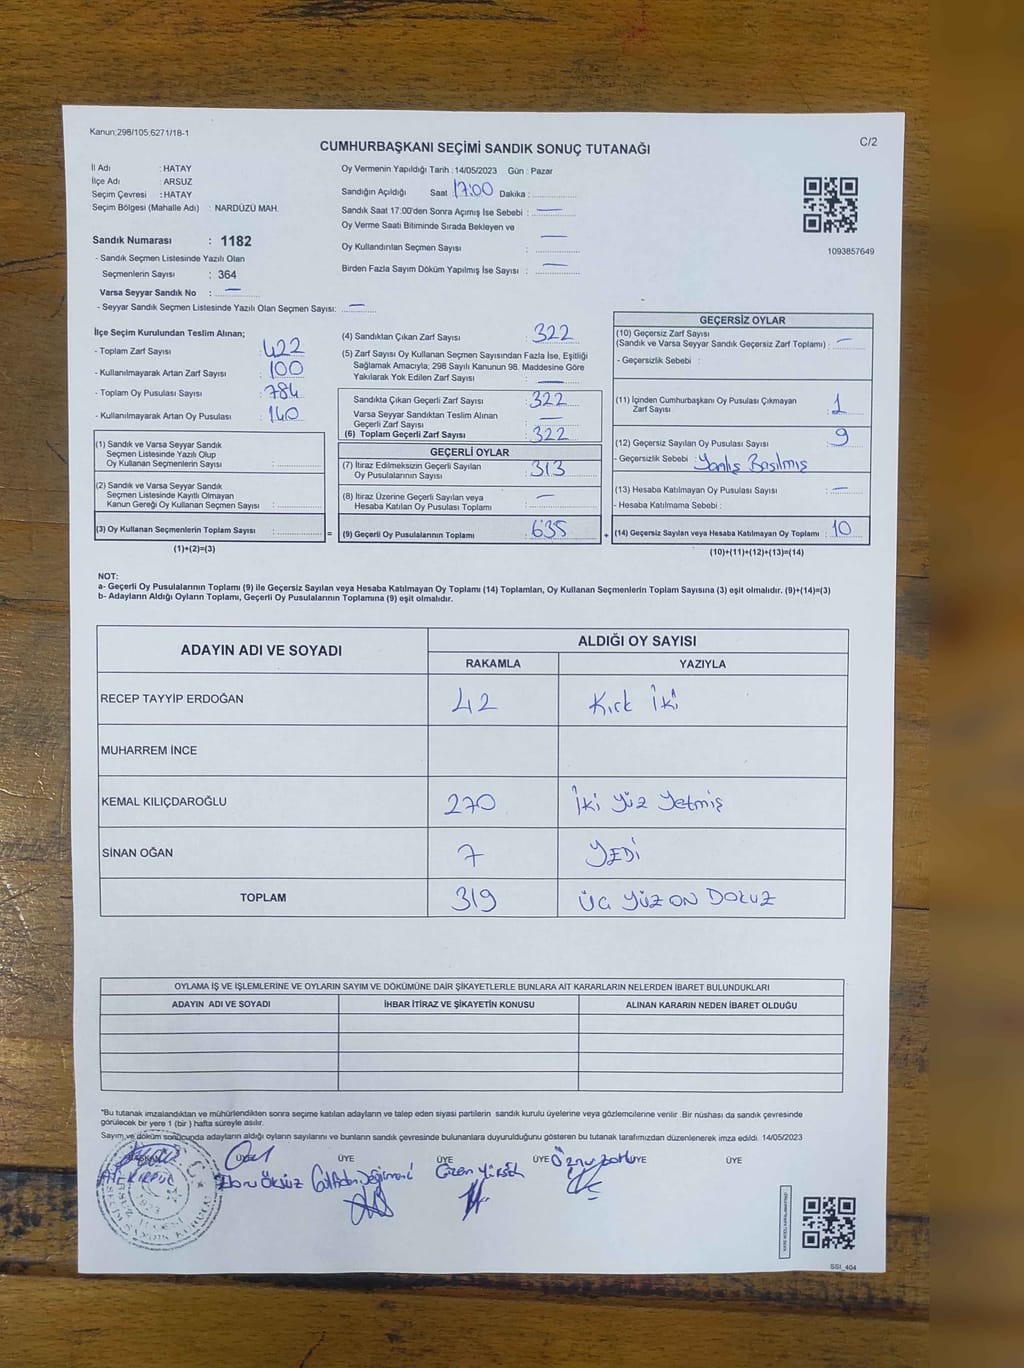 Kanun:298/105,6271/18-1
C/2
CUMHURBAŞKANI SEÇİMİ SANDIK SONUÇ TUTANAĞI
İl Adı : HATAY
İlçe Adı : ARSUZ
Seçim Çevresi : HATAY
Seçim Bölgesi (Mahalle Adı) : NARDÜZÜ MAH.
Oy Vermenin Yapıldığı Tarih : 14/05/2023 Gün : Pazar
Sandığın Açıldığı Saat 17:00 Dakika :
Sandık Saat 17:00'den Sonra Açımış İse Sebebi : —
Oy Verme Saati Bitiminde Sırada Bekleyen ve
Oy Kullandırılan Seçmen Sayısı : —
Birden Fazla Sayım Döküm Yapılmış İse Sayısı : —
1093857649
Sandık Numarası : 1182
- Sandık Seçmen Listesinde Yazılı Olan
Seçmenlerin Sayısı : 364
Varsa Seyyar Sandık No : —
- Seyyar Sandık Seçmen Listesinde Yazılı Olan Seçmen Sayısı: —
İlçe Seçim Kurulundan Teslim Alınan;
- Toplam Zarf Sayısı : 422
- Kullanılmayarak Artan Zarf Sayısı : 100
- Toplam Oy Pusulası Sayısı : 784
- Kullanılmayarak Artan Oy Pusulası : 140
(1) Sandık ve Varsa Seyyar Sandık
Seçmen Listesinde Yazılı Olup
Oy Kullanan Seçmenlerin Sayısı :
(2) Sandık ve Varsa Seyyar Sandık
Seçmen Listesinde Kayıtlı Olmayan
Kanun Gereği Oy Kullanan Seçmen Sayısı :
(3) Oy Kullanan Seçmenlerin Toplam Sayısı : =
(1)+(2)=(3)
(4) Sandıktan Çıkan Zarf Sayısı : 322
(5) Zarf Sayısı Oy Kullanan Seçmen Sayısından Fazla İse, Eşitliği
Sağlamak Amacıyla; 298 Sayılı Kanunun 98. Maddesine Göre
Yakılarak Yok Edilen Zarf Sayısı : —
Sandıkta Çıkan Geçerli Zarf Sayısı : 322
Varsa Seyyar Sandıktan Teslim Alınan
Geçerli Zarf Sayısı : —
(6) Toplam Geçerli Zarf Sayısı : 322
GEÇERLİ OYLAR
(7) İtiraz Edilmeksizin Geçerli Sayılan
Oy Pusulalarının Sayısı : 313
(8) İtiraz Üzerine Geçerli Sayılan veya
Hesaba Katılan Oy Pusulası Toplamı : —
(9) Geçerli Oy Pusulalarının Toplamı : 635 +
GEÇERSİZ OYLAR
(10) Geçersiz Zarf Sayısı
(Sandık ve Varsa Seyyar Sandık Geçersiz Zarf Toplamı) : —
- Geçersizlik Sebebi :
(11) İçinden Cumhurbaşkanı Oy Pusulası Çıkmayan
Zarf Sayısı : 1
(12) Geçersiz Sayılan Oy Pusulası Sayısı : 9
- Geçersizlik Sebebi : Yanlış Basılmış
(13) Hesaba Katılmayan Oy Pusulası Sayısı : —
- Hesaba Katılmama Sebebi :
(14) Geçersiz Sayılan veya Hesaba Katılmayan Oy Toplamı : 10
(10)+(11)+(12)+(13)=(14)
NOT:
a- Geçerli Oy Pusulalarının Toplamı (9) ile Geçersiz Sayılan veya Hesaba Katılmayan Oy Toplamı (14) Toplamları, Oy Kullanan Seçmenlerin Toplam Sayısına (3) eşit olmalıdır. (9)+(14)=(3)
b- Adayların Aldığı Oyların Toplamı, Geçerli Oy Pusulalarının Toplamına (9) eşit olmalıdır.
ADAYIN ADI VE SOYADI ALDIĞI OY SAYISI
RAKAMLA YAZIYLA
RECEP TAYYİP ERDOĞAN 42 Kırk İki
MUHARREM İNCE
KEMAL KILIÇDAROĞLU 270 İki Yüz Yetmiş
SİNAN OĞAN 7 YEDİ
TOPLAM 319 ÜÇ YÜZ ON DOKUZ
OYLAMA İŞ VE İŞLEMLERİNE VE OYLARIN SAYIM VE DÖKÜMÜNE DAİR ŞİKAYETLERLE BUNLARA AİT KARARLARIN NELERDEN İBARET BULUNDUKLARI
ADAYIN ADI VE SOYADI İHBAR İTİRAZ VE ŞİKAYETİN KONUSU ALINAN KARARIN NEDEN İBARET OLDUĞU
*Bu tutanak imzalandıktan ve mühürlendikten sonra seçime katılan adayların ve talep eden siyasi partilerin sandık kurulu üyelerine veya gözlemcilerine verilir. Bir nüshası da sandık çevresinde
görülecek bir yere 1 (bir) hafta süreyle asılır.
Sayım ve döküm sonucunda adayların aldığı oyların sayılarını ve bunların sandık çevresinde bulunanlara duyurulduğunu gösteren bu tutanak tarafımızdan düzenlenerek imza edildi. 14/05/2023
BAŞKAN ÜYE ÜYE ÜYE ÜYE ÜYE ÜYE
Ebru Öksüz
SSI_404